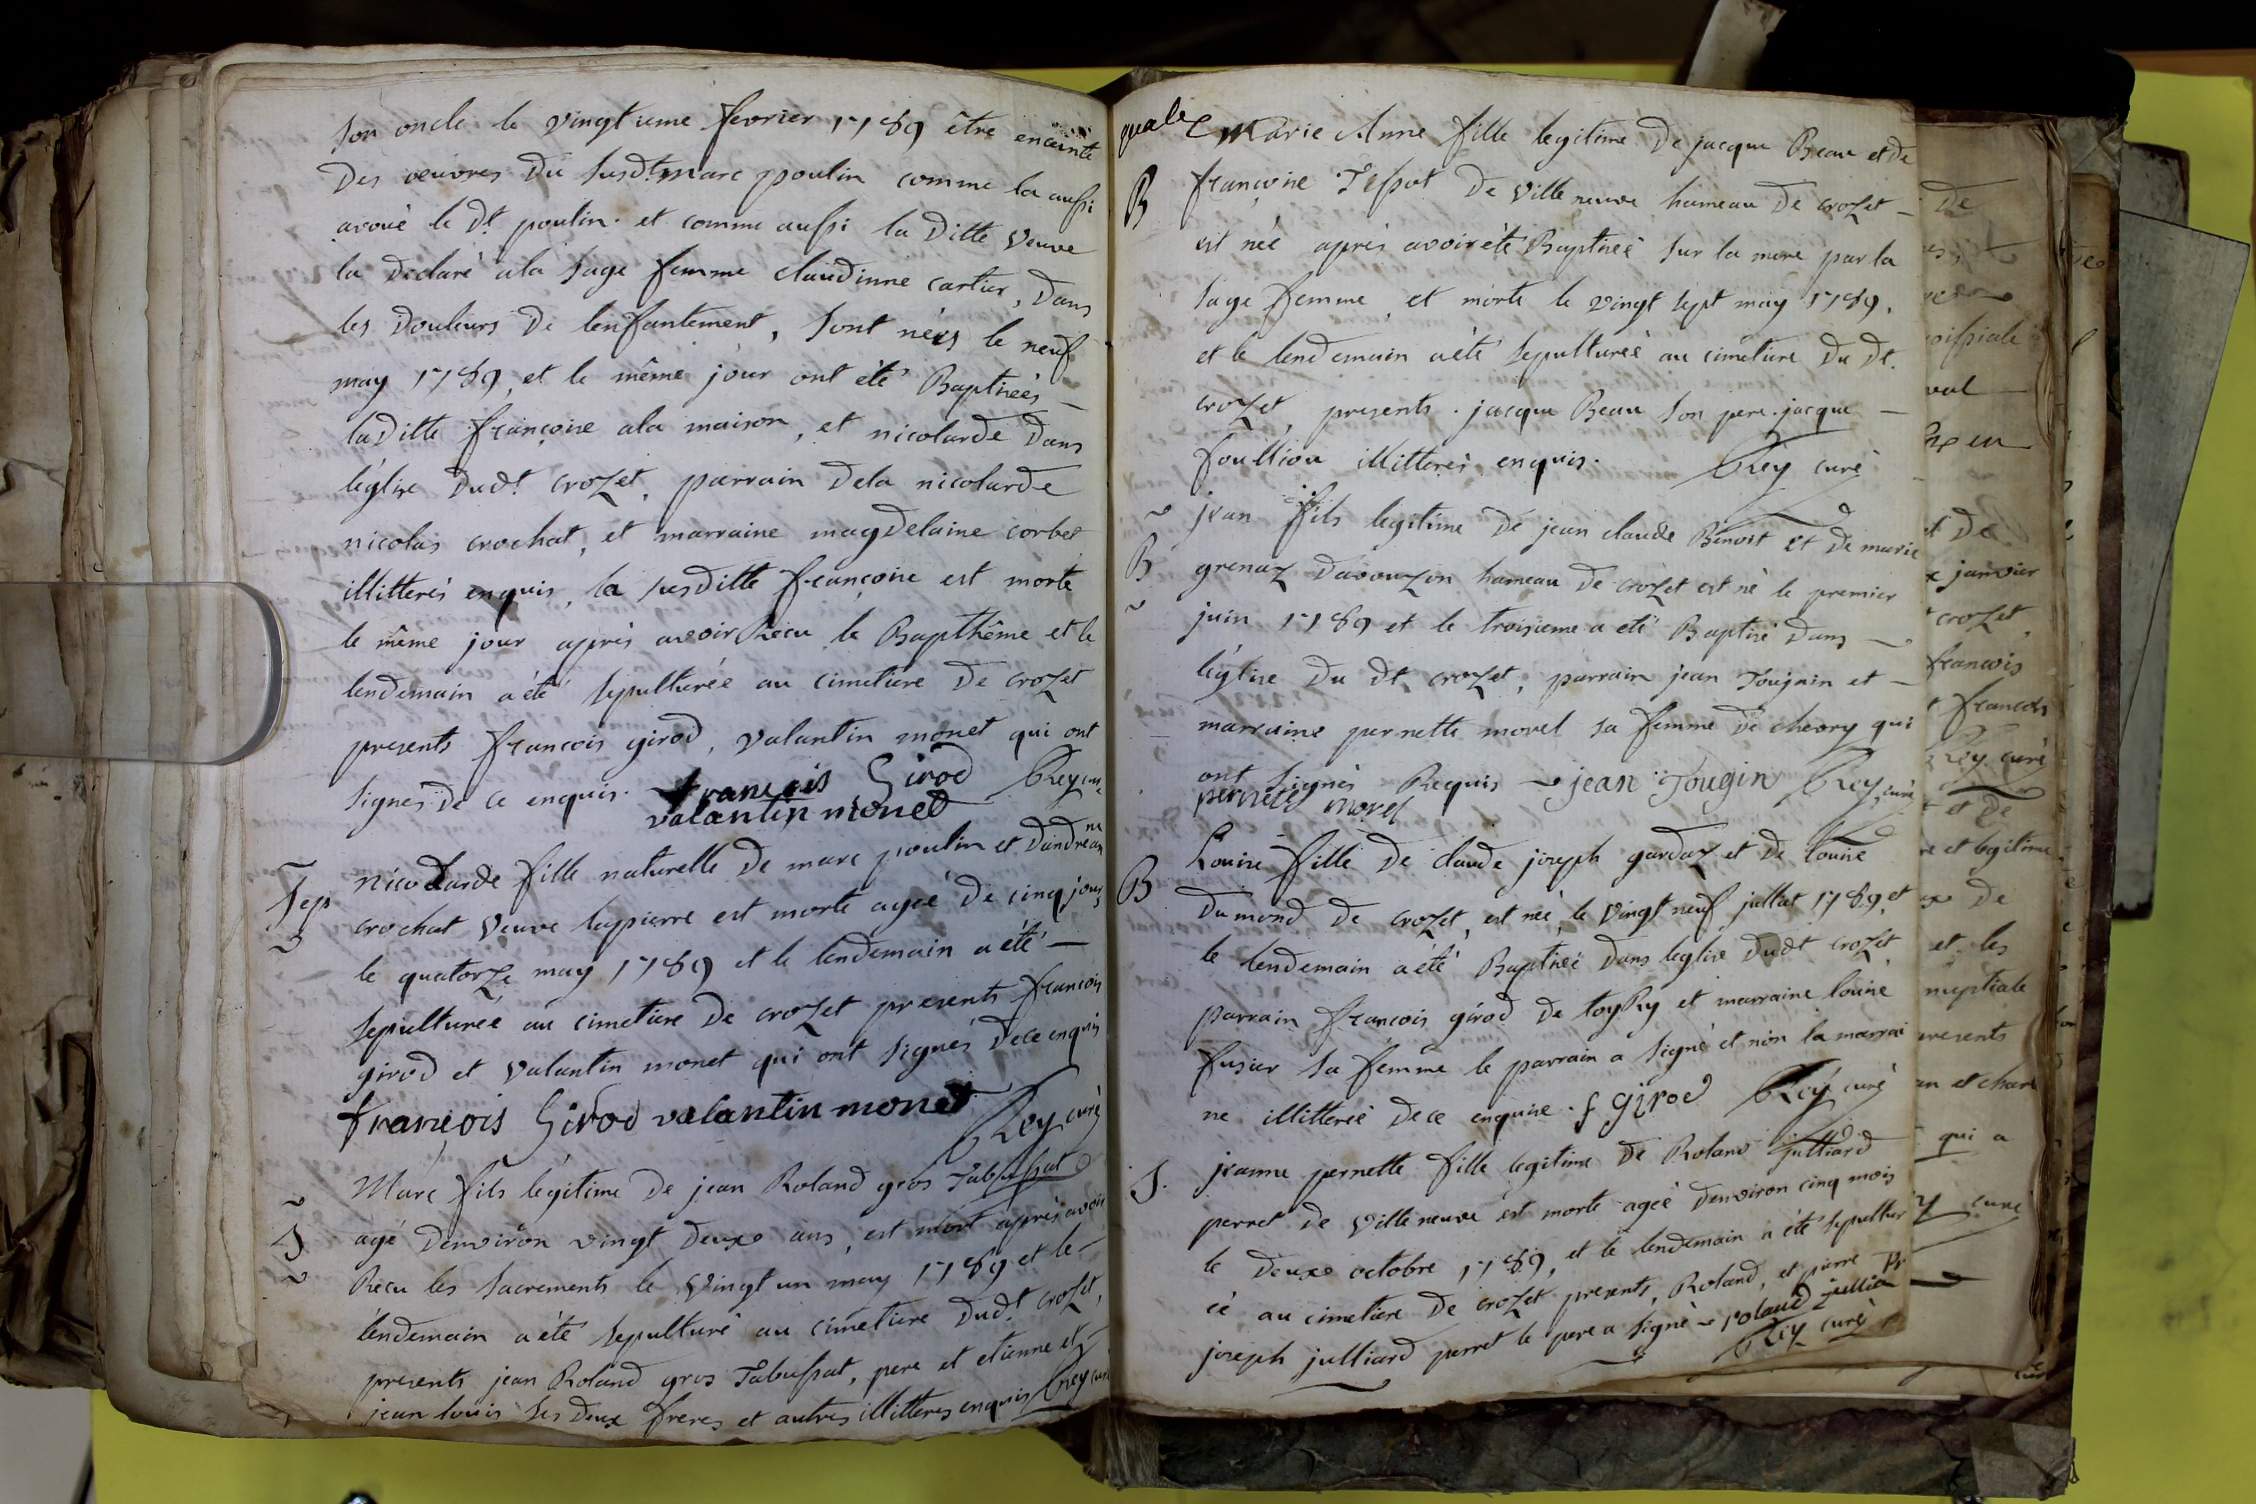 son oncle le vingtieme fevrier 1789 être enceinte
Des oeuvres du susdt. marc poulin comme la aussi
avoué le dt poulin. et comme aussi la ditte veuve
la declaré ala sage femme claudinne cartier, dans
les douleurs de lenfantement, sont néés le neuf
may 1789, et le même jour ont été Baptisées –
laditte françoise ala maison, et nicolarde dans
léglise dudt. crozet, parrain dela nicolarde
nicolas crochat, et marraine magdelaine corbet
illitterés enquis, la susditte françoise est morte
le même jour après avoir Recu le Bapthême et le
lendemain a été sepulturée au cimetiere de crozet
presents francois girod, valantin monet qui ont
signes de ce enquis. francois Girod Rey curé
valantin moned
Sep nicolarde fille naturelle de marc poulin et dandreanne
crochat veuve lapierre est morte ageé de cinq jours
le quatorze may 1789 et le lendemain a été –
sepulturée au cimetiere de crozet presents francois
girod et valantin monet qui ont signés dece enquis
françois Girod valantin moned Rey curé
S Marc fils légitime de jean Roland gros Tabussat
agé denviron vingt deux ans, est mort après avoir
Recu les sacrements le vingt un may 1789 et le –
lendemain a été sepulturé au cimetiere dudt. crozet,
presents jean Roland gros Tabussat, pere et etienne et
jean louis ses deux freres et autres illitteres enquis Rey curé
B Marie Anne fille legitime de jacque Beau et de
françoise Tissot de villeneuve hameau de crozet –
est née après avoir été Baptiseé sur la mere par la
sage femme, et morte le vingt sept may 1789,
et le lendemain a été sepultureé au cimetiere du dt.
crozet, presents. jacque Beau son pere. jacque –
foulliou illitterés enquis. Rey curé
B jean fils legitime de jean claude Benoit et de marie
grenaz davouzon hameau de crozet est né le premier
juin 1789 et le troisieme a eté Baptisé dans –
léglise du dt crozet, parrain jean Tougnin et –
marraine pernette morel sa femme de cheory qui
ont signés Requis jean Tougin Rey curé
pernete morel
B Louise fille de claude joseph gardaz et de louise
dumond de crozet, est née le vingt neuf juillat 1789, et
le lendemain a été Baptiseé dans leglise dudt crozet
parrain francois girod de toyRy et marraine louise
fusier sa femme le parrain a signé et non la marrai
ne illitterée dece enquise. f Girod Rey curé
S. jeanne pernette fille legitime de Roland julliard
perret de villeneuve est morte ageé denviron cinq mois
le deux octobre 1789, et le lendemain a été sepultur
eé au cimetiere de crozet presents, Roland, et pierre
joseph julliard perret le pere a signé roland jullia
Rey curé